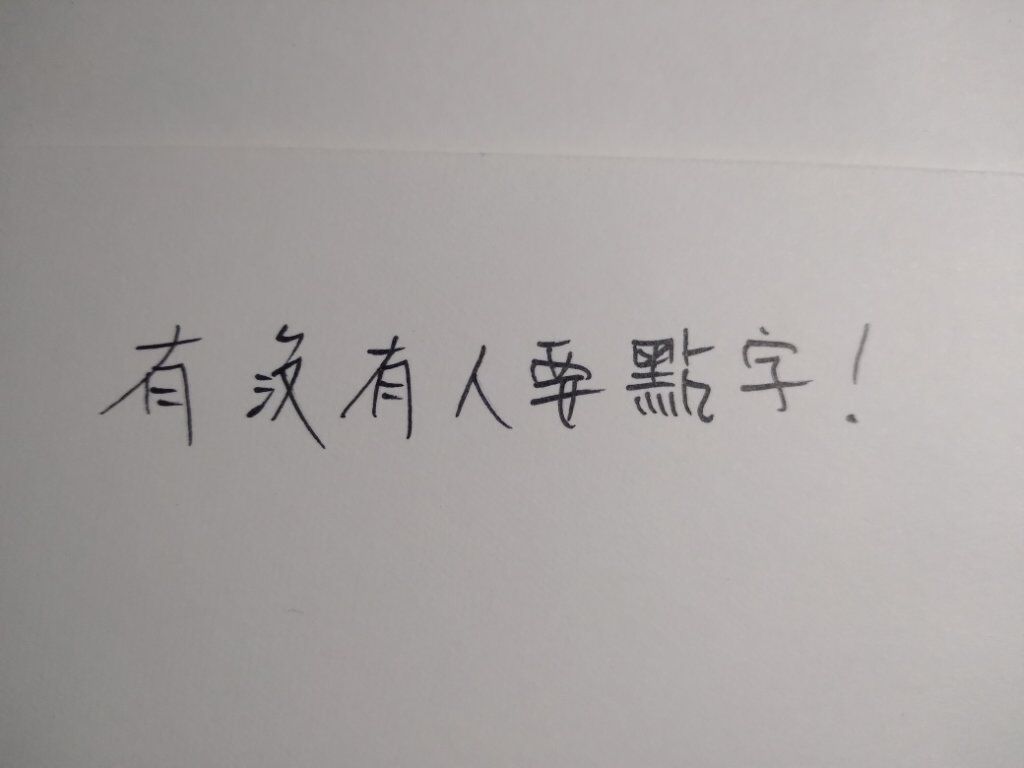 有沒有人要點字！